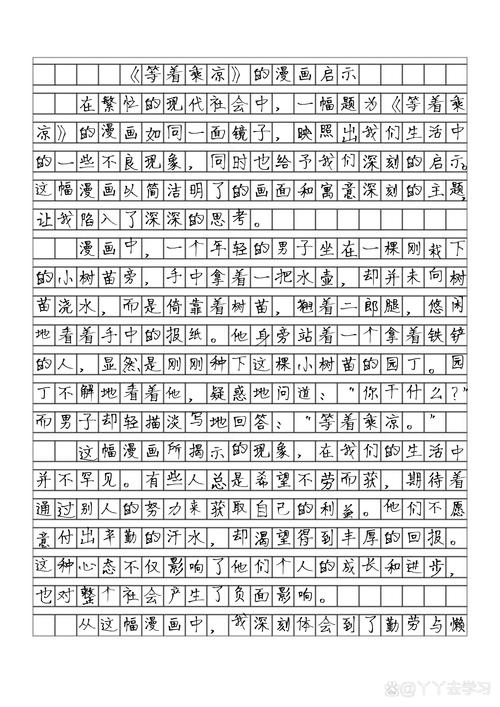 《等着乘凉》的漫画启示
在繁忙的现代社会中，一幅题为《等着乘
凉》的漫画如同一面镜子，映照出我们生活中
的一些不良现象，同时也给予我们深刻的启示。
这幅漫画以简洁明了的画面和寓意深刻的主题，
让我陷入了深深的思考。
漫画中，一个年轻的男子坐在一棵刚栽下
的小树苗旁，手中拿着一把水壶，却并未向树
苗浇水，而是倚靠着树苗，翘着二郎腿，悠闲
地看着手中的报纸。他身旁站着一个拿着铁铲
的人，显然是刚刚种下这棵小树苗的园丁。园
丁不解地看着他，疑惑地问道：“你干什么？”
而男子却轻描淡写地回答：“等着乘凉。”
这幅漫画所揭示的现象，在我们的生活中
并不罕见。有些人总是希望不劳而获，期待着
通过别人的努力来获取自己的利益。他们不愿
意付出辛勤的汗水，却渴望得到丰厚的回报。
这种心态不仅影响了他们个人的成长和进步，
也对整个社会产生了负面影响。
从这幅漫画中，我深刻体会到了勤劳与懒
@丫丫去学习